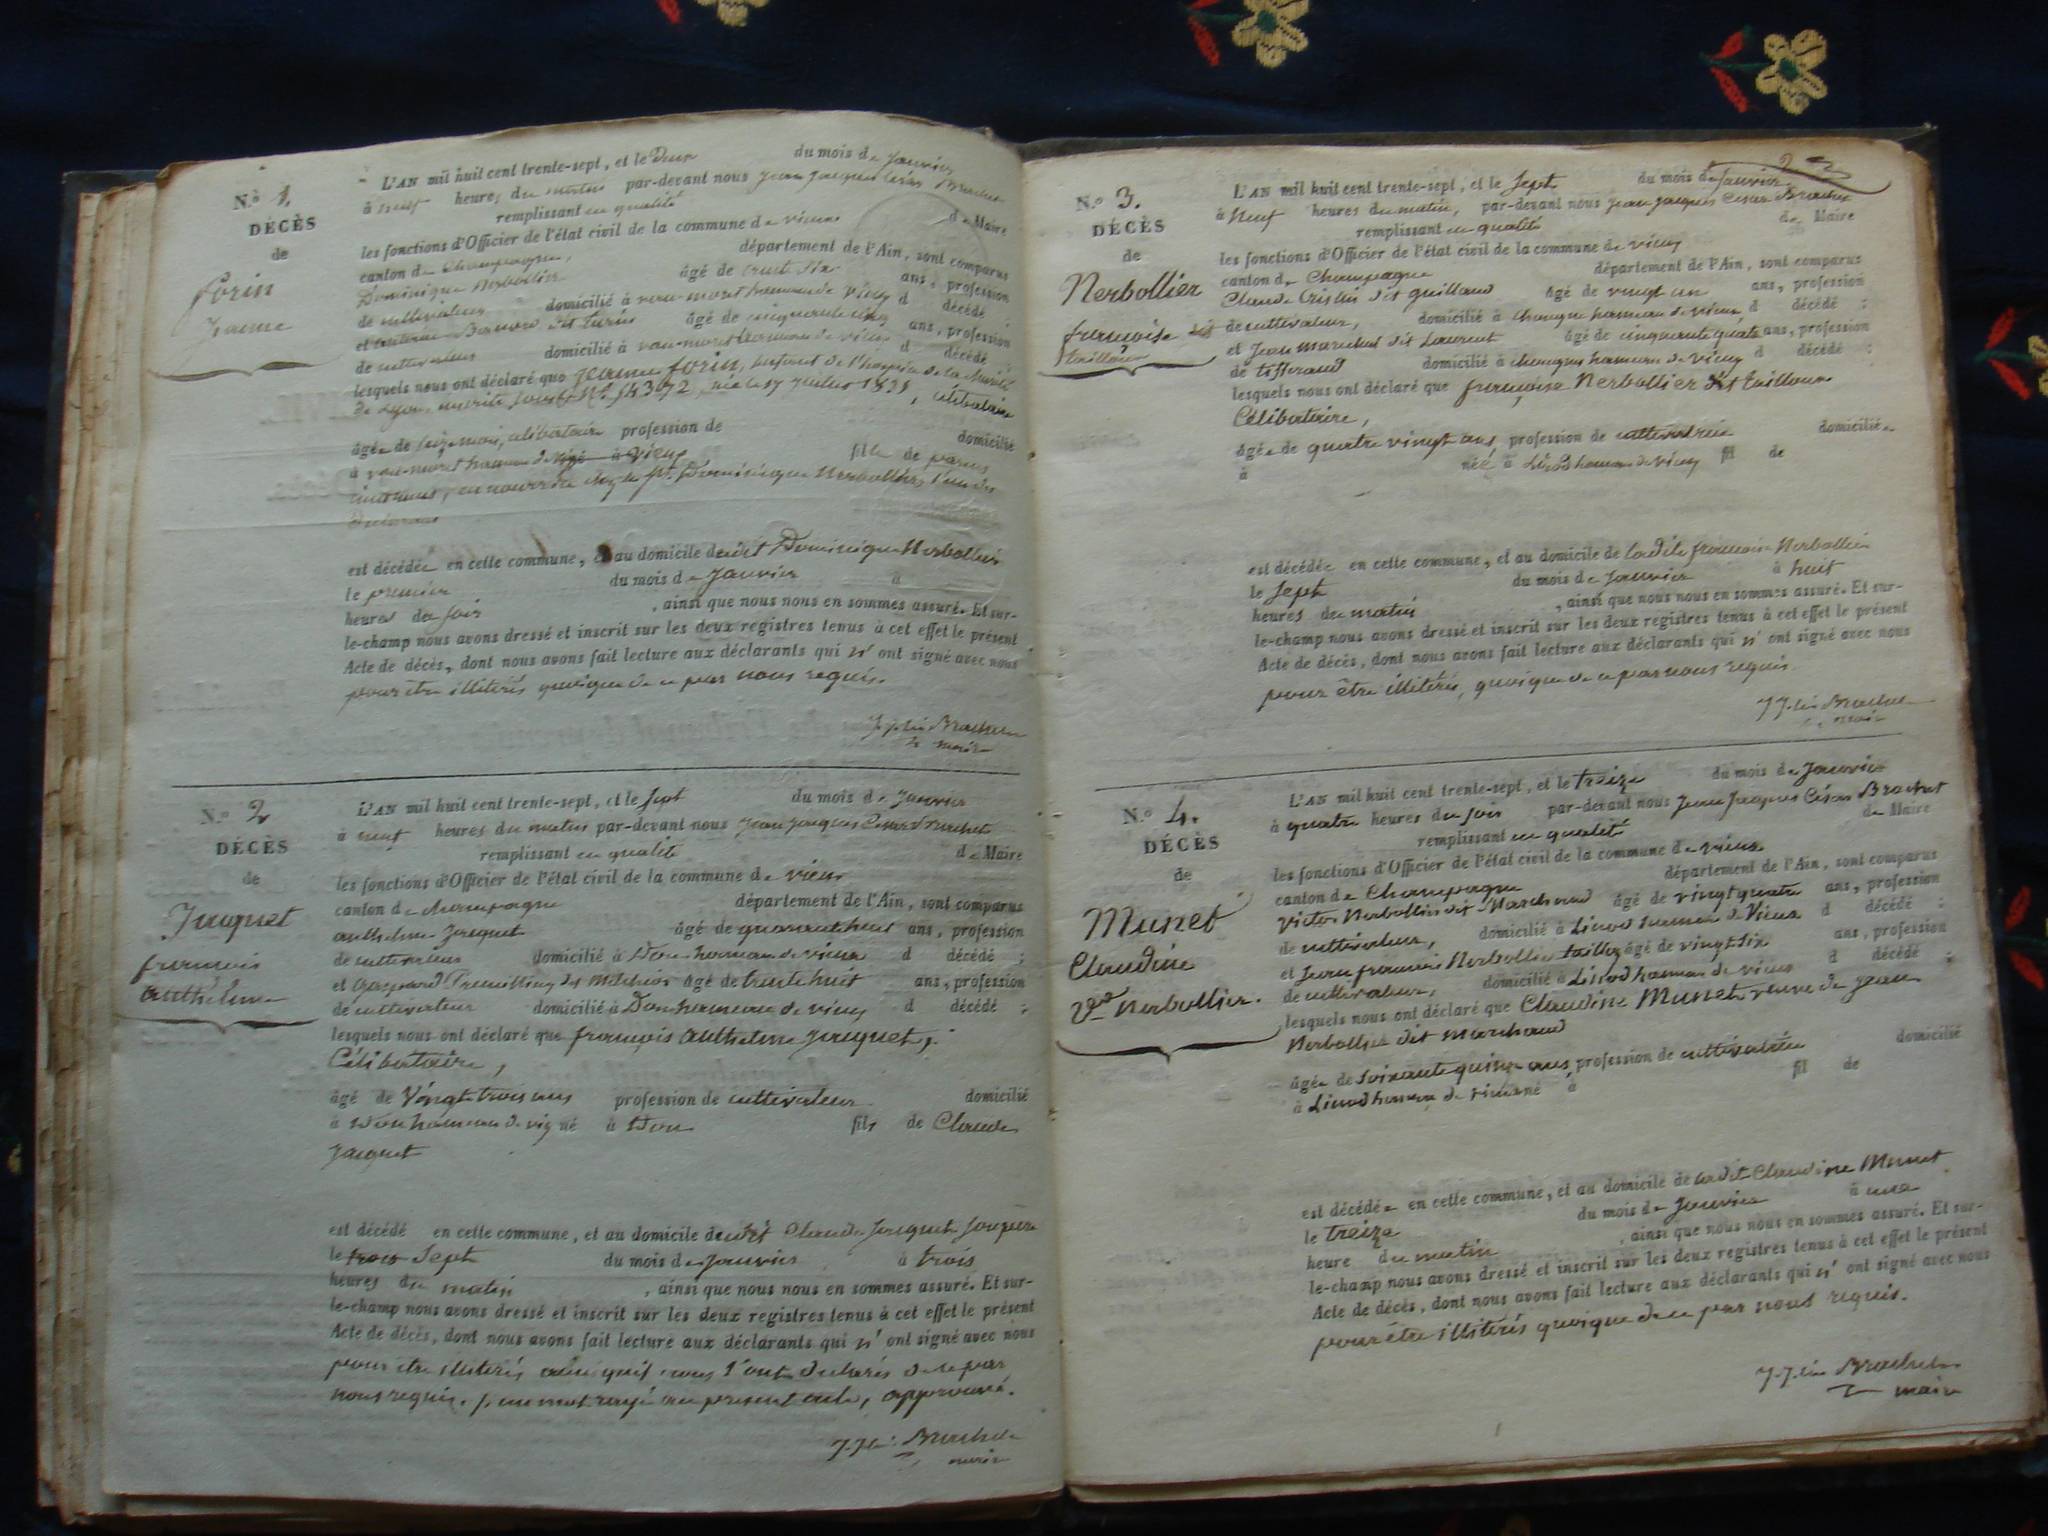 N.º 1.
DÉCÈS
de
forin
Jeanne
L'AN mil huit cent trente-sept, et le Deux du mois de Janvier
à neuf heures du matin par-devant nous Jean Jacques César Brachet
remplissant en qualité de Maire
les fonctions d'Officier de l'état civil de la commune de vieux
canton de Champagne, département de l'Ain, sont comparus
Dominique Nerbollier âgé de trente six ans, profession
de cultivateur domicilié à hameau de Vieux d décédé ;
et âgé de cinquante cinq ans, profession
de cultivateur domicilié à hameau de vieux d décédé ;
lesquels nous ont déclaré que Jeanne forin, enfant de l'hospice de la
de Lyon, inscrite sous le Nº , née le 17 Juillet , célibataire
âgée de mois, célibataire profession de domicilié
à hameau de né à Vieux fille de parens
inconnus, en nourrice chez le Sr. Dominique Nerbollier, l'un des
déclarans
est décédée en cette commune, et au domicile dudit Dominique Nerbollier
le premier du mois de Janvier à
heures du soir , ainsi que nous nous en sommes assuré. Et sur-
le-champ nous avons dressé et inscrit sur les deux registres tenus à cet effet le présent
Acte de décès, dont nous avons fait lecture aux déclarants qui n' ont signé avec nous
pour être illitérés quoique de ce par nous requis.
Brachet
maire
N.º 2
DÉCÈS
de
Jaquet
francois
Anthelme
L'AN mil huit cent trente-sept, et le Sept du mois de Janvier
à neuf heures du matin par-devant nous Jean Jacques César Brachet
remplissant en qualité de Maire
les fonctions d'Officier de l'état civil de la commune de vieux
canton de champagne département de l'Ain, sont comparus
anthelme Jacquet âgé de quarante huit ans, profession
de cultivateur domicilié à Don hameau de vieux d décédé ;
et Gaspard dit âgé de trente huit ans, profession
de cultivateur domicilié à Don hameau de vieux d décédé ;
lesquels nous ont déclaré que françois Anthelme Jaquet,
Célibataire,
âgé de Vingt trois ans profession de cultivateur domicilié
à Don hameau de né à Don fils de Claude
Jacquet
est décédé en cette commune, et au domicile dudit Claude Jacquet son père
le trois Sept du mois de Janvier à trois
heures du matin , ainsi que nous nous en sommes assuré. Et sur-
le-champ nous avons dressé et inscrit sur les deux registres tenus à cet effet le présent
Acte de décès, dont nous avons fait lecture aux déclarants qui n' ont signé avec nous
pour être illitérés ainsi qu'il nous l'ont déclarés de ce par
nous requis. un mot rayé au présent acte, approuvé.
Brachet
maire
2
N.º 3.
DÉCÈS
de
Nerbollier
francoise dit
taillour
L'AN mil huit cent trente-sept, et le Sept du mois de Janvier
à Neuf heures du matin, par-devant nous Jean Jacques César Brachet
remplissant en qualité de Maire
les fonctions d'Officier de l'état civil de la commune de vieux
canton de Champagne département de l'Ain, sont comparus
Claude dit guilland âgé de vingt un ans, profession
de cultivateur, domicilié à hameau de vieux d décédé ;
et Jean marechal dit Laurent âgé de cinquante quatre ans, profession
de tisserand domicilié à hameau de vieux d décédé ;
lesquels nous ont déclaré que françoise Nerbollier dit taillour
Célibataire,
âgée de quatre vingt ans profession de cultivatrice domiciliée
à née à Linod hameau de vieux fil de
est décédée en cette commune, et au domicile de ladite francoise Nerbollier
le Sept du mois de Janvier à huit
heures du matin , ainsi que nous nous en sommes assuré. Et sur-
le-champ nous avons dressé et inscrit sur les deux registres tenus à cet effet le présent
Acte de décès, dont nous avons fait lecture aux déclarants qui n' ont signé avec nous
pour être illitérés, quoique de ce par nous requis.
Brachet
maire
N.º 4.
DÉCÈS
de
Munet
Claudine
Vve Nerbollier.
L'AN mil huit cent trente-sept, et le treize du mois de Janvier
à quatre heures du soir par-devant nous Jean Jacques César Brachet
remplissant en qualité de Maire
les fonctions d'Officier de l'état civil de la commune de vieux
canton de Champagne département de l'Ain, sont comparus
Victor Nerbollier dit Marchand âgé de vingt quatre ans, profession
de cultivateur, domicilié à Linod hameau de Vieux d décédé ;
et Jean francois Nerbollier âgé de vingt six ans, profession
de cultivateur, domicilié à Linod hameau de vieux d décédé ;
lesquels nous ont déclaré que Claudine Munet veuve de Jean
Nerbollier dit marchand
âgée de Soixante quinze ans profession de cultivatrice domicilié
à Linod hameau de vieux né à fil de
est décédée en cette commune, et au domicile de ladit Claudine Munet
le treize du mois de Janvier à une
heure du matin , ainsi que nous nous en sommes assuré. Et sur-
le-champ nous avons dressé et inscrit sur les deux registres tenus à cet effet le présent
Acte de décès, dont nous avons fait lecture aux déclarants qui n' ont signé avec nous
pour être illitérés quoique de ce par nous requis.
Brachet
maire